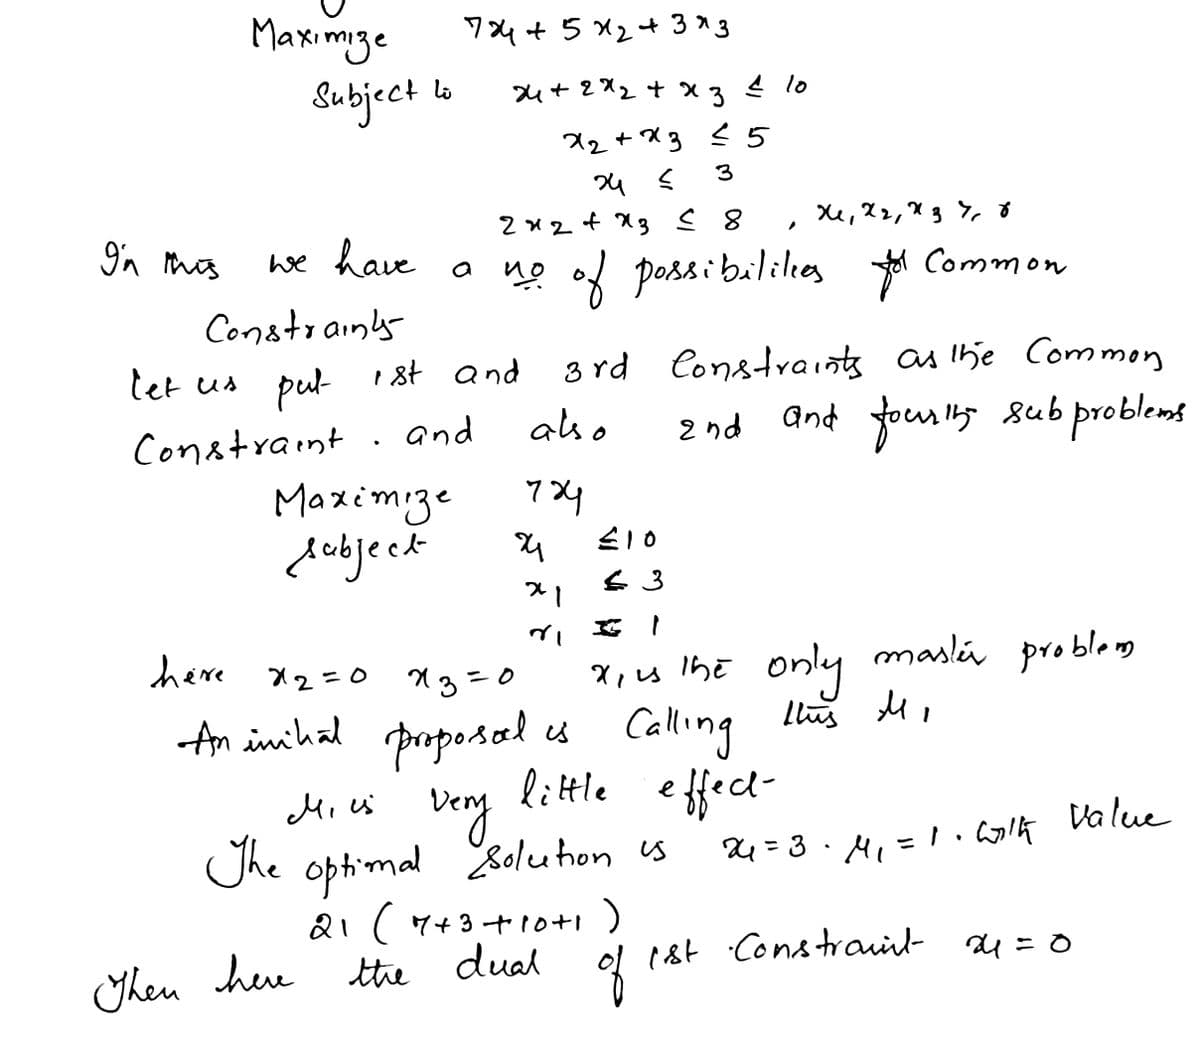 Maximize 7x1 + 5x2 + 3x3
Subject to x1 + 2x2 + x3 ≤ 10
x2 + x3 ≤ 5
x1 ≤ 3
2x2 + x3 ≤ 8 , x1, x2, x3 ≥ 0
In this we have a no of possibilities for Common
Constraints
let us put 1st and 3rd Constraints as the Common
Constraint . and also 2nd and fourth sub problems
Maximize 7x1
subject x1 ≤ 10
x1 ≤ 3
1
here x2 = 0 x3 = 0 x1 is the only master problem
An initial proposal is Calling this μ1
μ1 is very little effect
The optimal Solution is x1 = 3 . μ1 = 1 . with Value
21 ( 7+3+10+1 )
Then here the dual of 1st Constraint x1 = 0